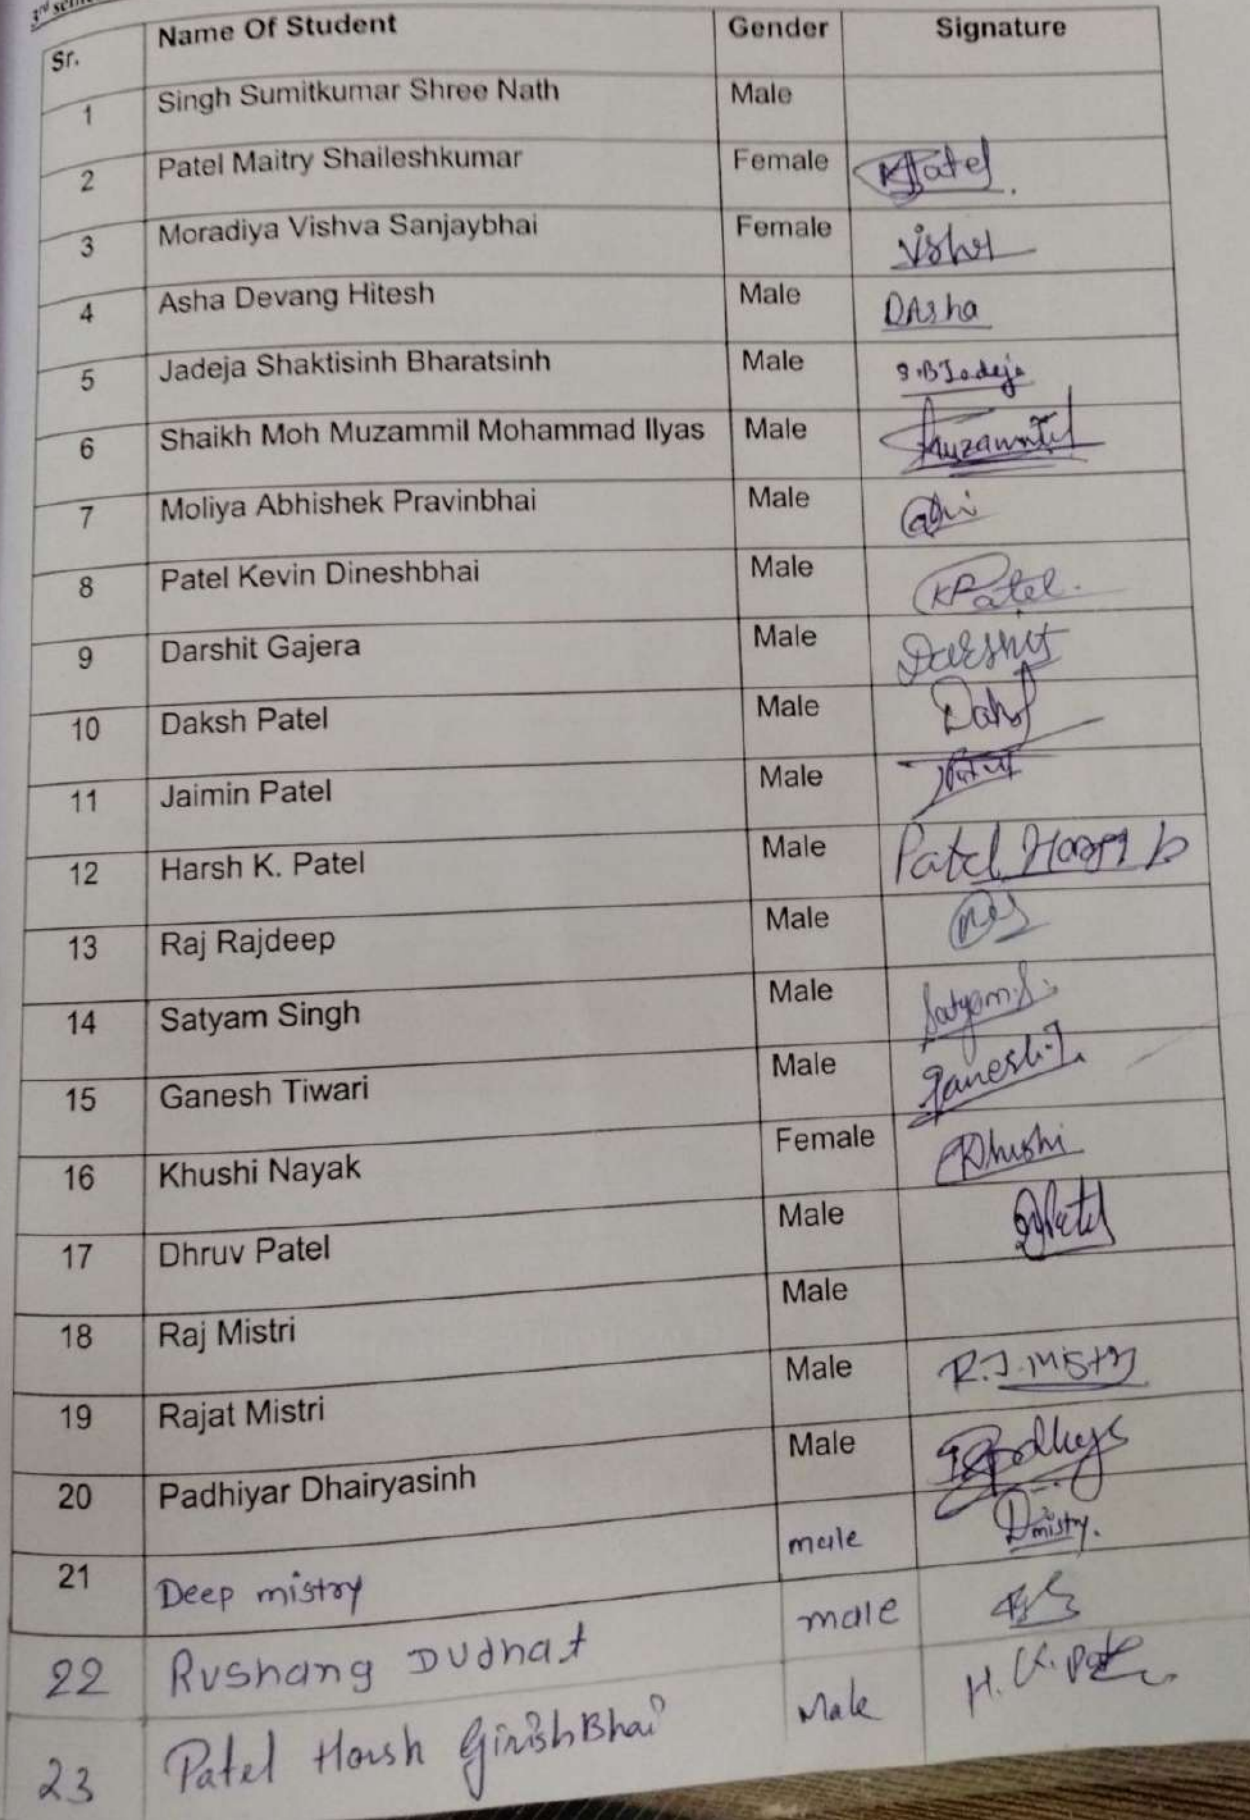 3rd
Sr. Name Of Student Gender Signature
1 Singh Sumitkumar Shree Nath Male
2 Patel Maitry Shaileshkumar Female Patel
3 Moradiya Vishva Sanjaybhai Female
4 Asha Devang Hitesh Male DAsha
5 Jadeja Shaktisinh Bharatsinh Male S.B Jadeja
6 Shaikh Moh Muzammil Mohammad Ilyas Male
7 Moliya Abhishek Pravinbhai Male
8 Patel Kevin Dineshbhai Male KPatel.
9 Darshit Gajera Male Darshit
10 Daksh Patel Male
11 Jaimin Patel Male
12 Harsh K. Patel Male Patel
13 Raj Rajdeep Male
14 Satyam Singh Male Satyam.S.
15 Ganesh Tiwari Male Ganesh.T.
16 Khushi Nayak Female Khushi
17 Dhruv Patel Male
18 Raj Mistri Male
19 Rajat Mistri Male R.J.Mistry
20 Padhiyar Dhairyasinh Male
21 Deep mistry male Dmistry.
22 Rushang Dudhat male
23 Patel Harsh GirishBhai Male